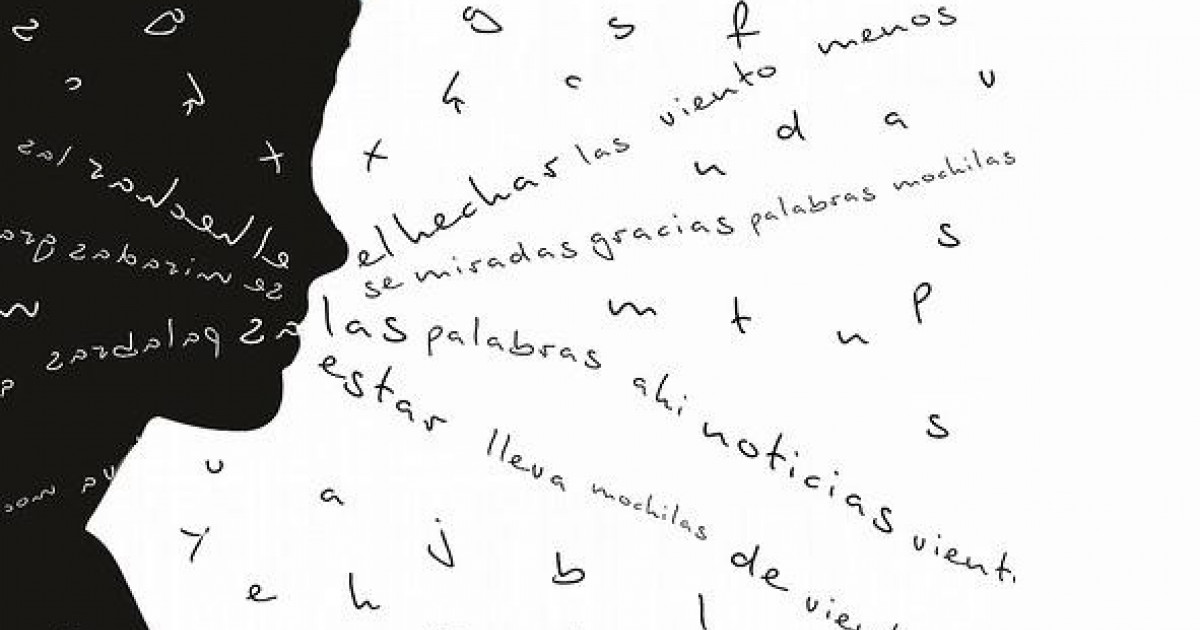 g s f
h c
el hechar las viento menos
u
d a
x
n
se miradas gracias palabras mochilas
s
m t u p
las palabras ahi noticias vient.
estar lleva mochilas de vien
s
u
a
y
j
b
e h
l